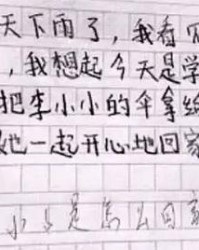 天下雨了，我看
，我想起今天是学
把李小小的伞拿给
她一起开心地回家
小小是怎么回家